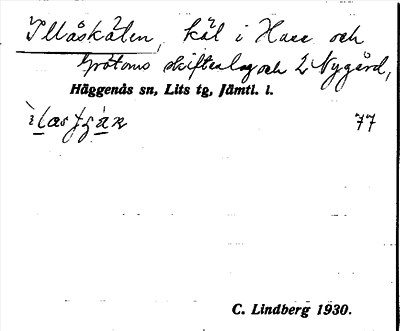 Illåskälen, käl i Hace och
Grötoms skifteslag och 2 Nygård,
Häggenås sn, Lits tg, Jämtl. l.
77
C. Lindberg 1930.